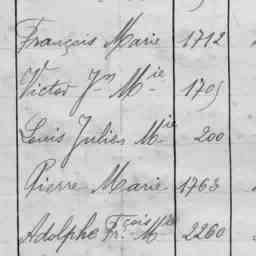 François Marie 1712
Victor Jn Mie 1705
Louis Julien Mie 200
Pierre Marie 1763
Adolphe Fr.çois Mie 2260